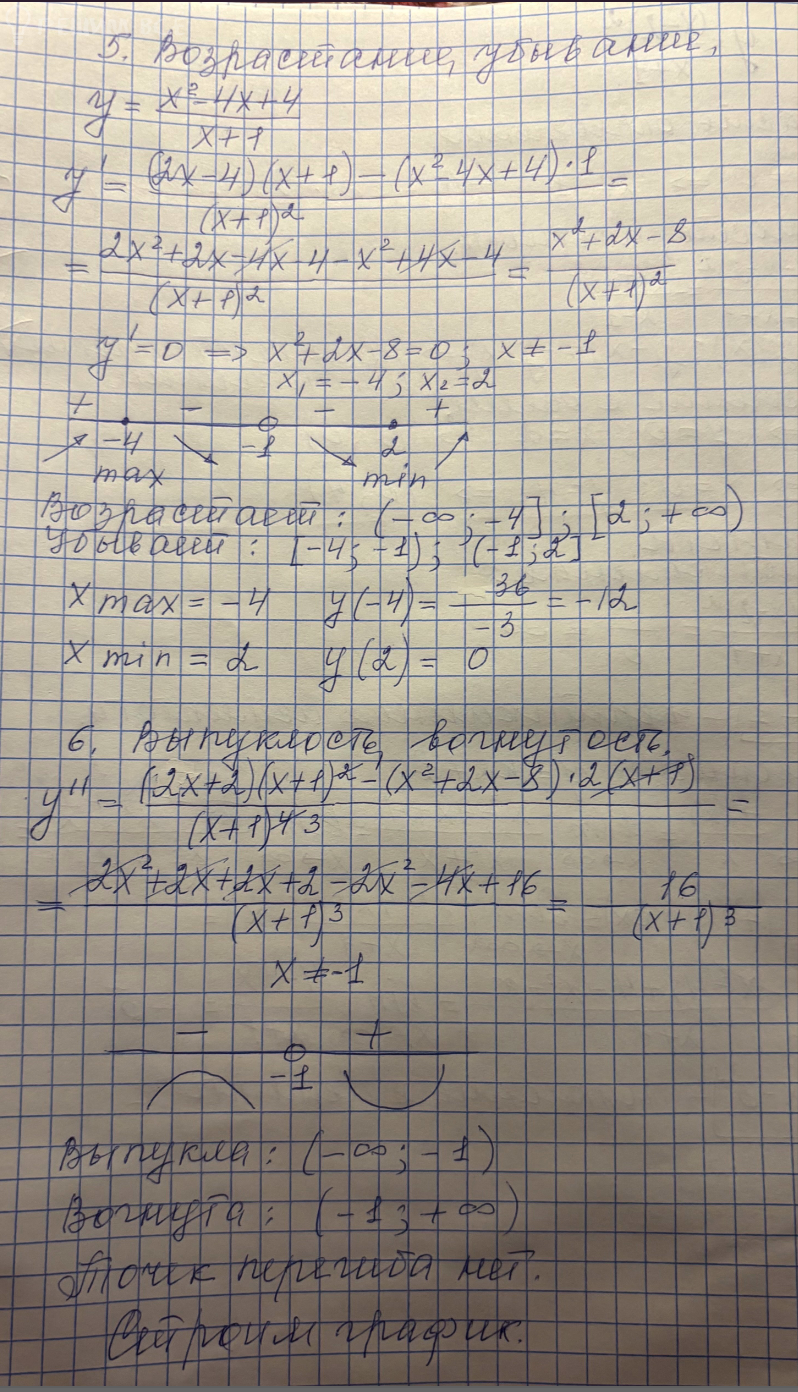 5. Возрастание, убывание,
y = (x² - 4x + 4)/(x + 1)
y' = ((2x - 4)(x + 1) - (x² - 4x + 4) · 1)/(x + 1)² =
= (2x² + 2x - 4x - 4 - x² + 4x - 4)/(x + 1)² = (x² + 2x - 8)/(x + 1)²
y' = 0 => x² + 2x - 8 = 0; x ≠ -1
x₁ = -4; x₂ = 2
+ - - +
-4 -1 2
max min
Возрастает: (-∞; -4]; [2; +∞)
Убывает: [-4; -1); (-1; 2]
x max = -4 y(-4) = 36/-3 = -12
x min = 2 y(2) = 0
6. Выпуклость, вогнутость.
y'' = ((2x + 2)(x + 1)² - (x² + 2x - 8) · 2(x + 1))/(x + 1)⁴ ³ =
= (2x² + 2x + 2x + 2 - 2x² - 4x + 16)/(x + 1)³ = 16/(x + 1)³
x ≠ -1
- +
-1
Выпукла: (-∞; -1)
Вогнута: (-1; +∞)
Точек перегиба нет.
Строим график.